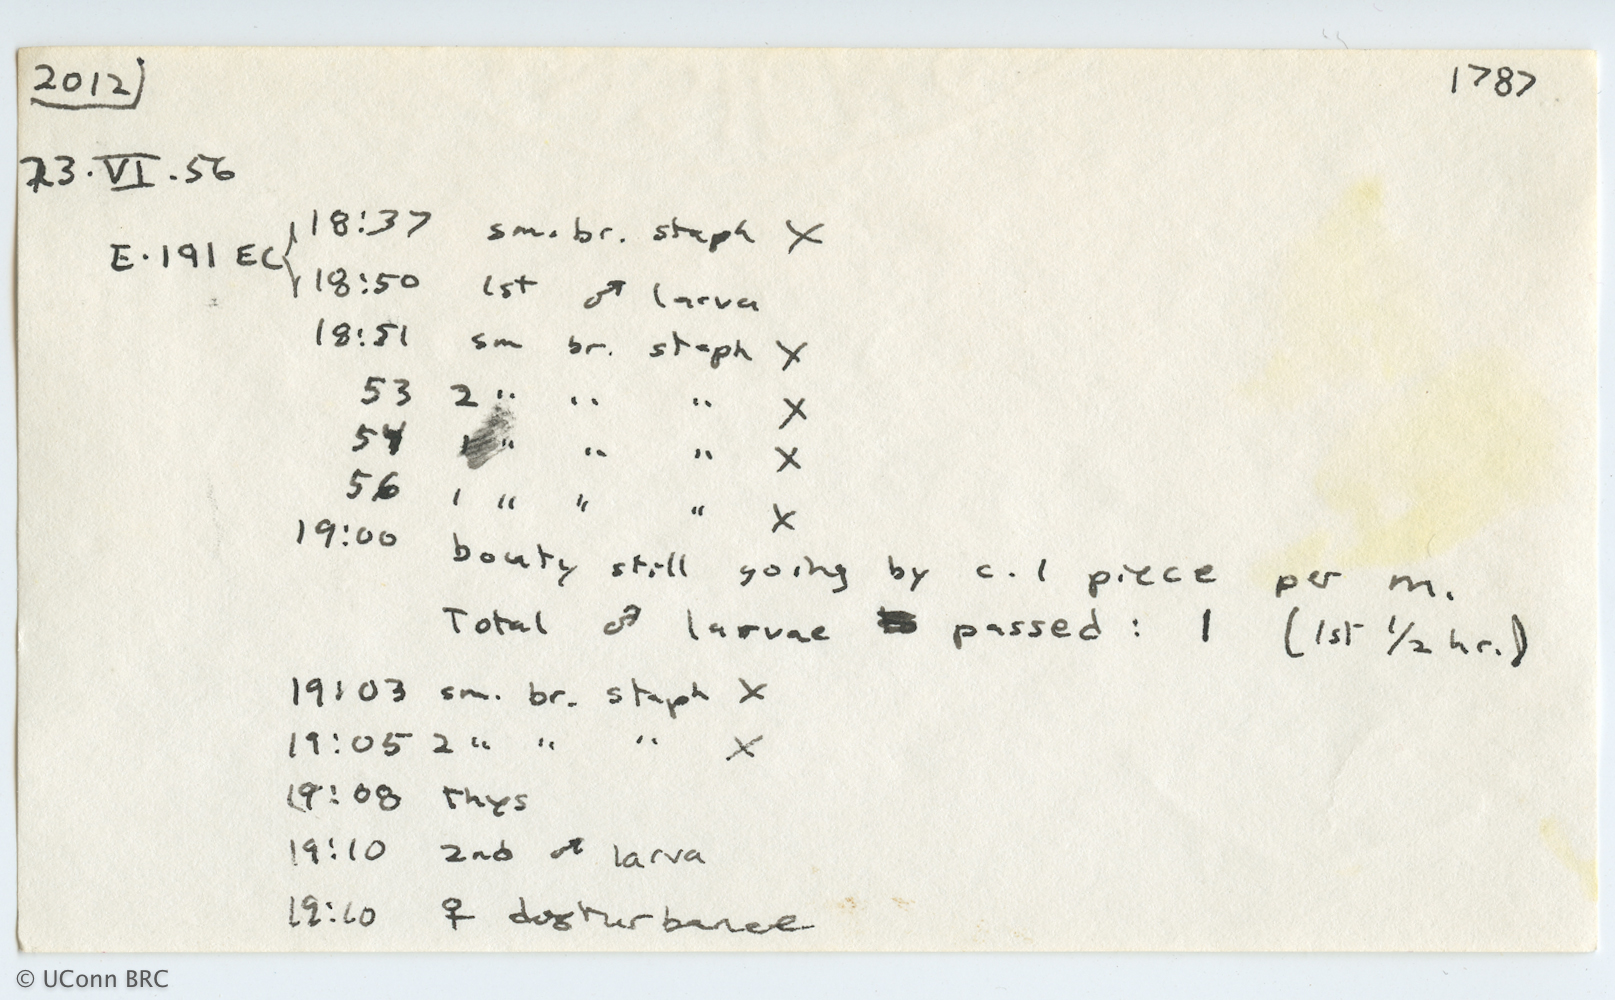 2012 1787
23.VI.56
E.191 EC { 18:37 sm. br. staph X
18:50 1st ♂ larva
18:51 sm br. staph X
53 2 " " " X
54 1 " " " X
56 1 " " " X
19:00 booty still going by c. 1 piece per m.
Total ♂ larvae passed : 1 (1st 1/2 hr.)
19:03 sm. br. staph X
19:05 2 " " " X
19:08 thys
19:10 2nd ♂ larva
19:10 ♀ dosturbance
© UConn BRC